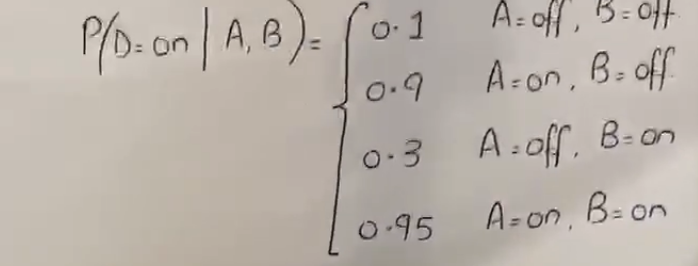 P(D=on | A, B) = { 0.1 A=off, B=off
0.9 A=on, B=off.
0.3 A=off, B=on
0.95 A=on, B=on